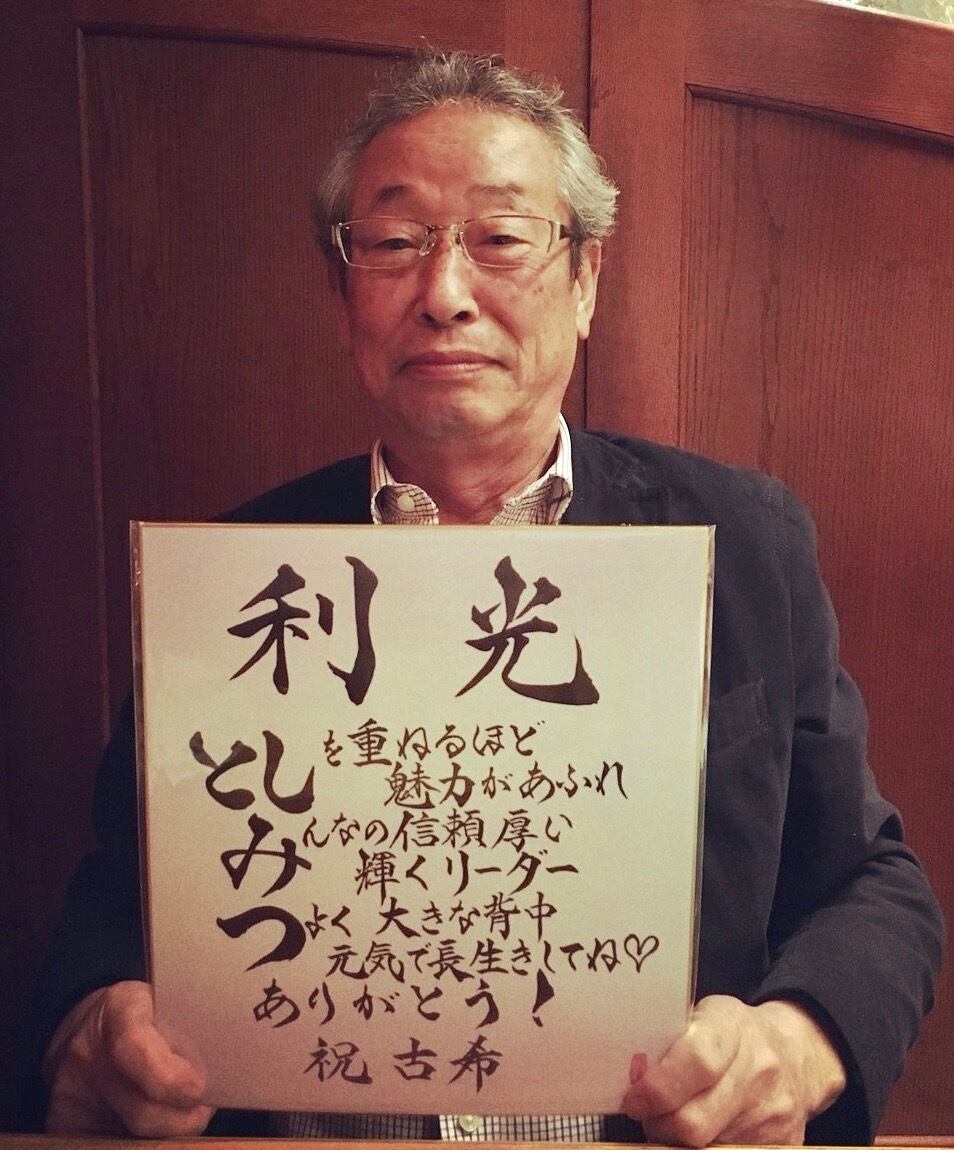 利光
としを重ねるほど
魅力があふれ
みんなの信頼厚い
輝くリーダー
つよく大きな背中
元気で長生きしてね♡
ありがとう!
祝古希